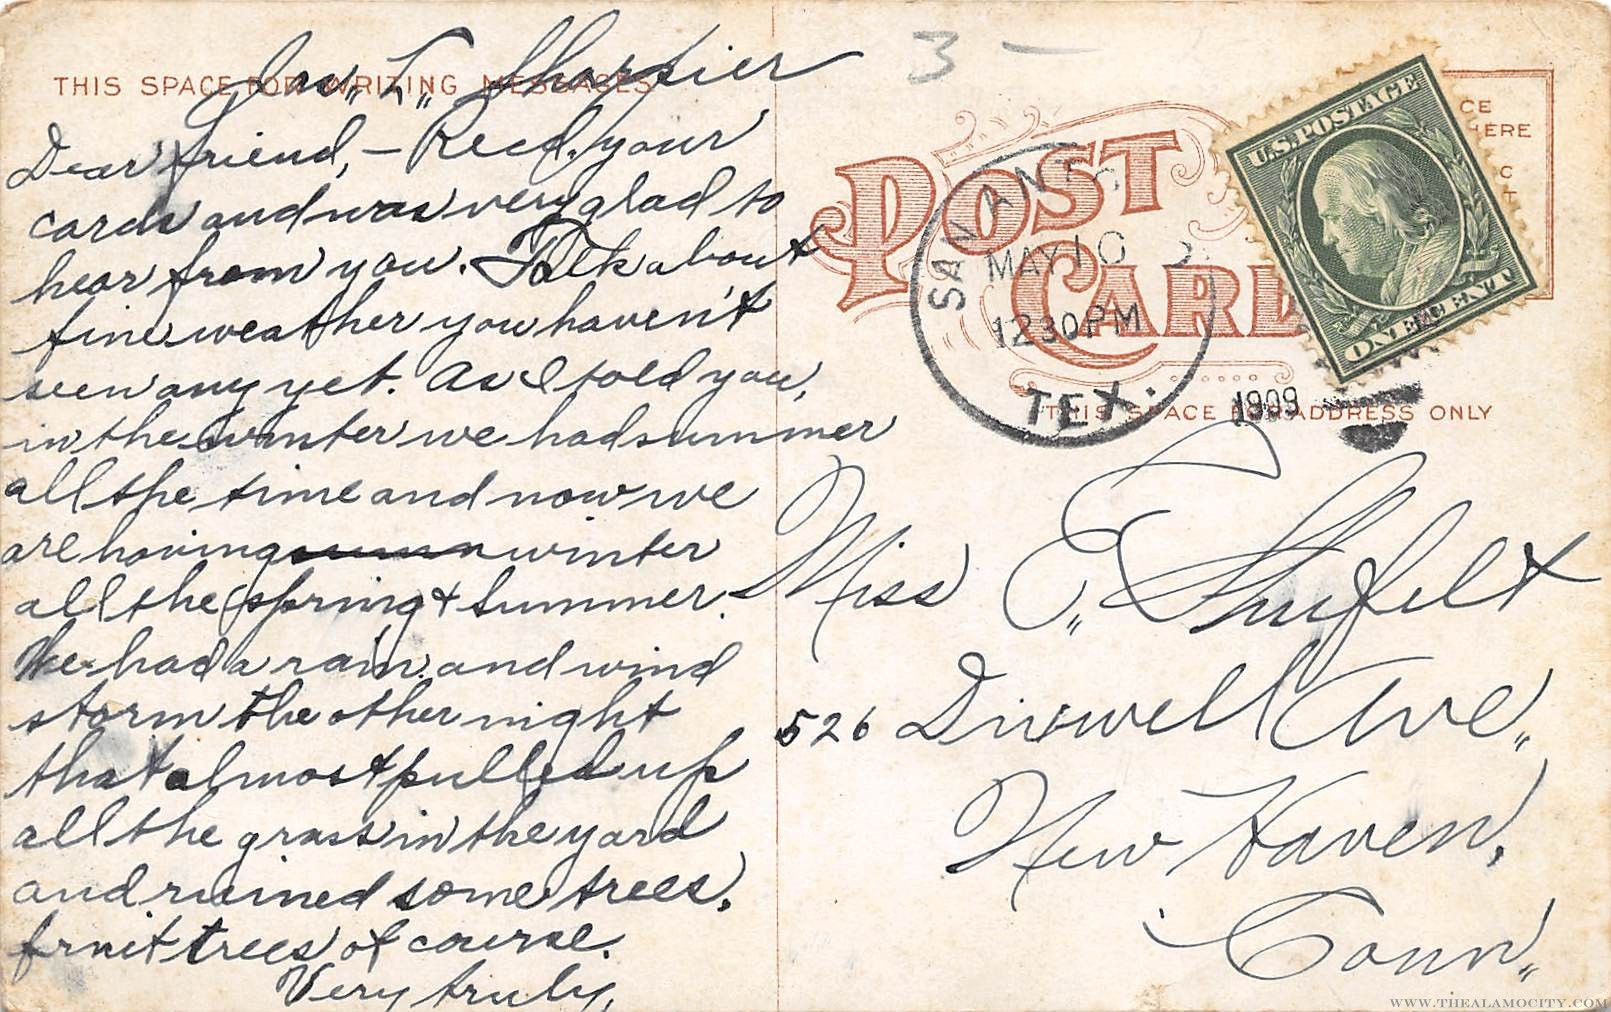 THIS SPACE FOR WRITING MESSAGES
Jas. L. Sharpier
Dear friend, – Recd. your
cards and was very glad to
hear from you. Talk about
fine weather you haven't
seen any yet. As I told you,
in the winter we had summer
all the time and now we
are having winter
all the spring & summer.
We had a rain and wind
storm the other night
that almost pulled up
all the grass in the yard
and ruined some trees.
fruit trees of course.
Very truly,
3 –
POST
CARD
SAN ANTO
MAY 10
12 30 PM
TEX.
1909
U.S. POSTAGE
ONE CENT
CE
HERE
THIS SPACE FOR ADDRESS ONLY
Miss E. Shufelt
526 Dixwell Ave.
New Haven,
Conn.
WWW.THEALAMOCITY.COM